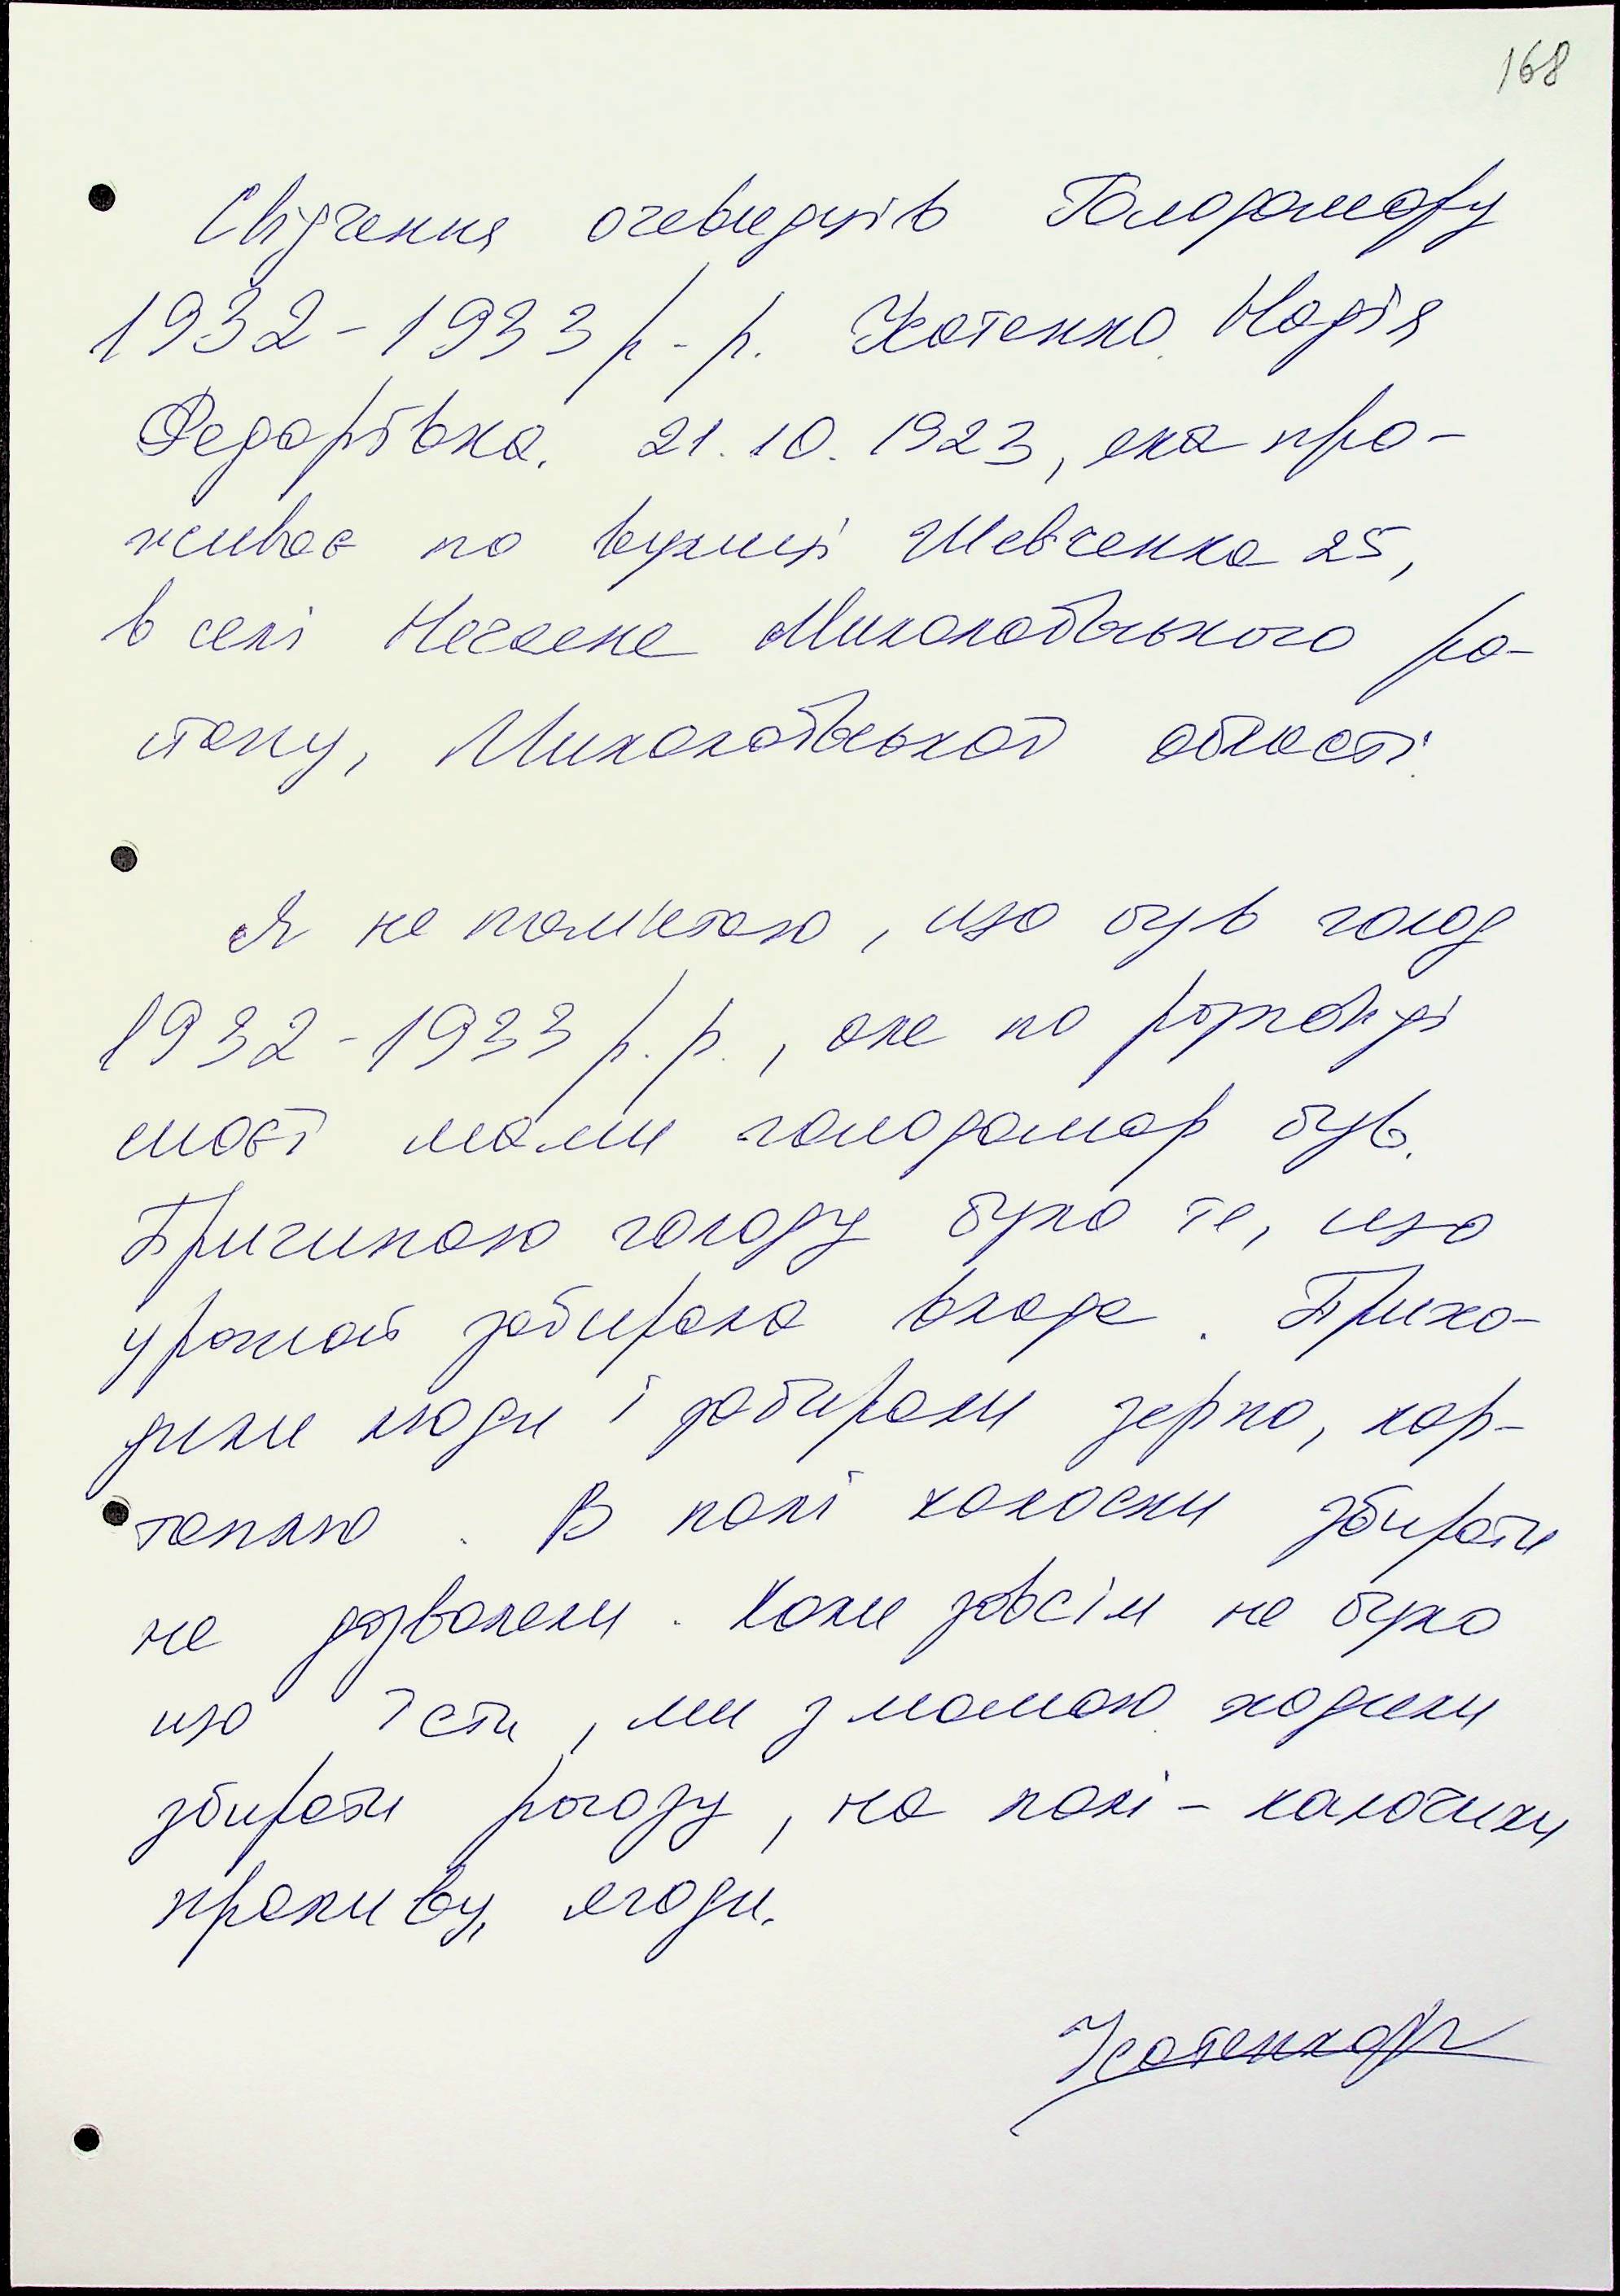 168
Свідчення очевидців Голодомору
1932-1933 р-р. Усатенко Надія
Федорівна. 21.10.1923, яка про-
живає по вулиці Шевченка 25,
в селі Нечаяне Миколаївського ра-
йону, Миколаївської області.
Я не пам'ятаю, що був голод
1932-1933 р.р., але по розповіді
моєї мами голодомор був.
Причиною голоду було те, що
урожай забирала влада. Прихо-
дили люди і забирали зерно, кар-
топлю. В полі колоски збирати
не дозволяли. Коли зовсім не було
що їсти, ми з мамою ходили
збирати рогозу, на полі - калачики
кропиву, ягоди.